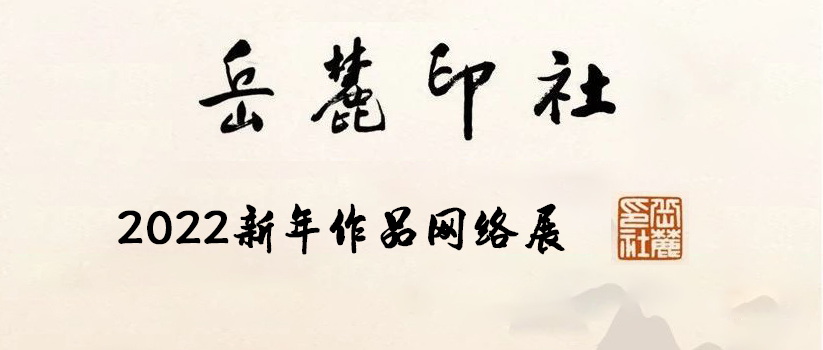 岳麓印社
2022新年作品网络展
岳麓印社